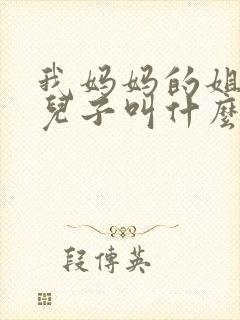 我妈妈的姐
兒子叫什麼
段傳英